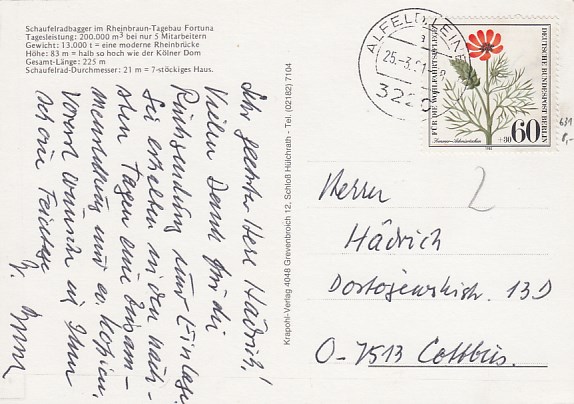 Schaufelradbagger im Rheinbraun-Tagebau Fortuna
Tagesleistung: 200.000 m³ bei nur 5 Mitarbeitern
Gewicht: 13.000 t = eine moderne Rheinbrücke
Höhe: 83 m = halb so hoch wie der Kölner Dom
Gesamt-Länge: 225 m
Schaufelrad-Durchmesser: 21 m = 7-stöckiges Haus.
Sehr geehrter Herr Hädrich,
Vielen Dank für die
Rücksendung
Sie erhalten in den näch-
sten Tagen eine Zusam-
menstellung und Kopien.
Vorerst wünsche ich Ihnen
Krapohl-Verlag 4048 Grevenbroich 12, Schloß Hülchrath - Tel. (02182) 7104
ALFELD, LEINE
25.-3.91
322
FÜR DIE WOHLFAHRTSPFLEGE
DEUTSCHE BUNDESPOST BERLIN
60
+30
631
8,-
2
Herrn
Hädrich
Dostojewskistr. 13D
O-7513 Cottbus.